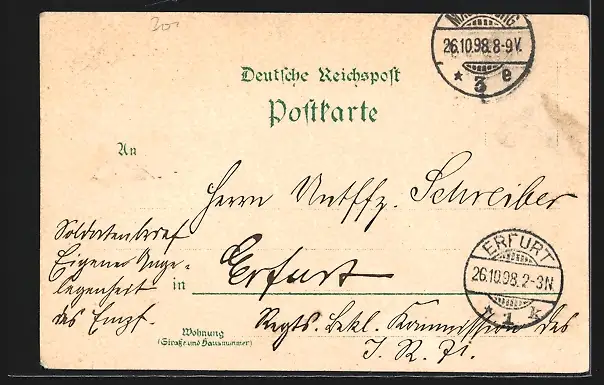 30.
26.10.98. 8-9V.
* 3 e
Deutsche Reichspost
Postkarte
An
Herrn Untffz. Schreiber
Soldatenbrief
Eigene Ange-
legenheit
des Empf.
in Erfurt
ERFURT
26.10.98. 2-3N.
* 1 k
Wohnung
(Straße und Hausnummer)
Regts. Bekl. Kommission des
J. R. 71.